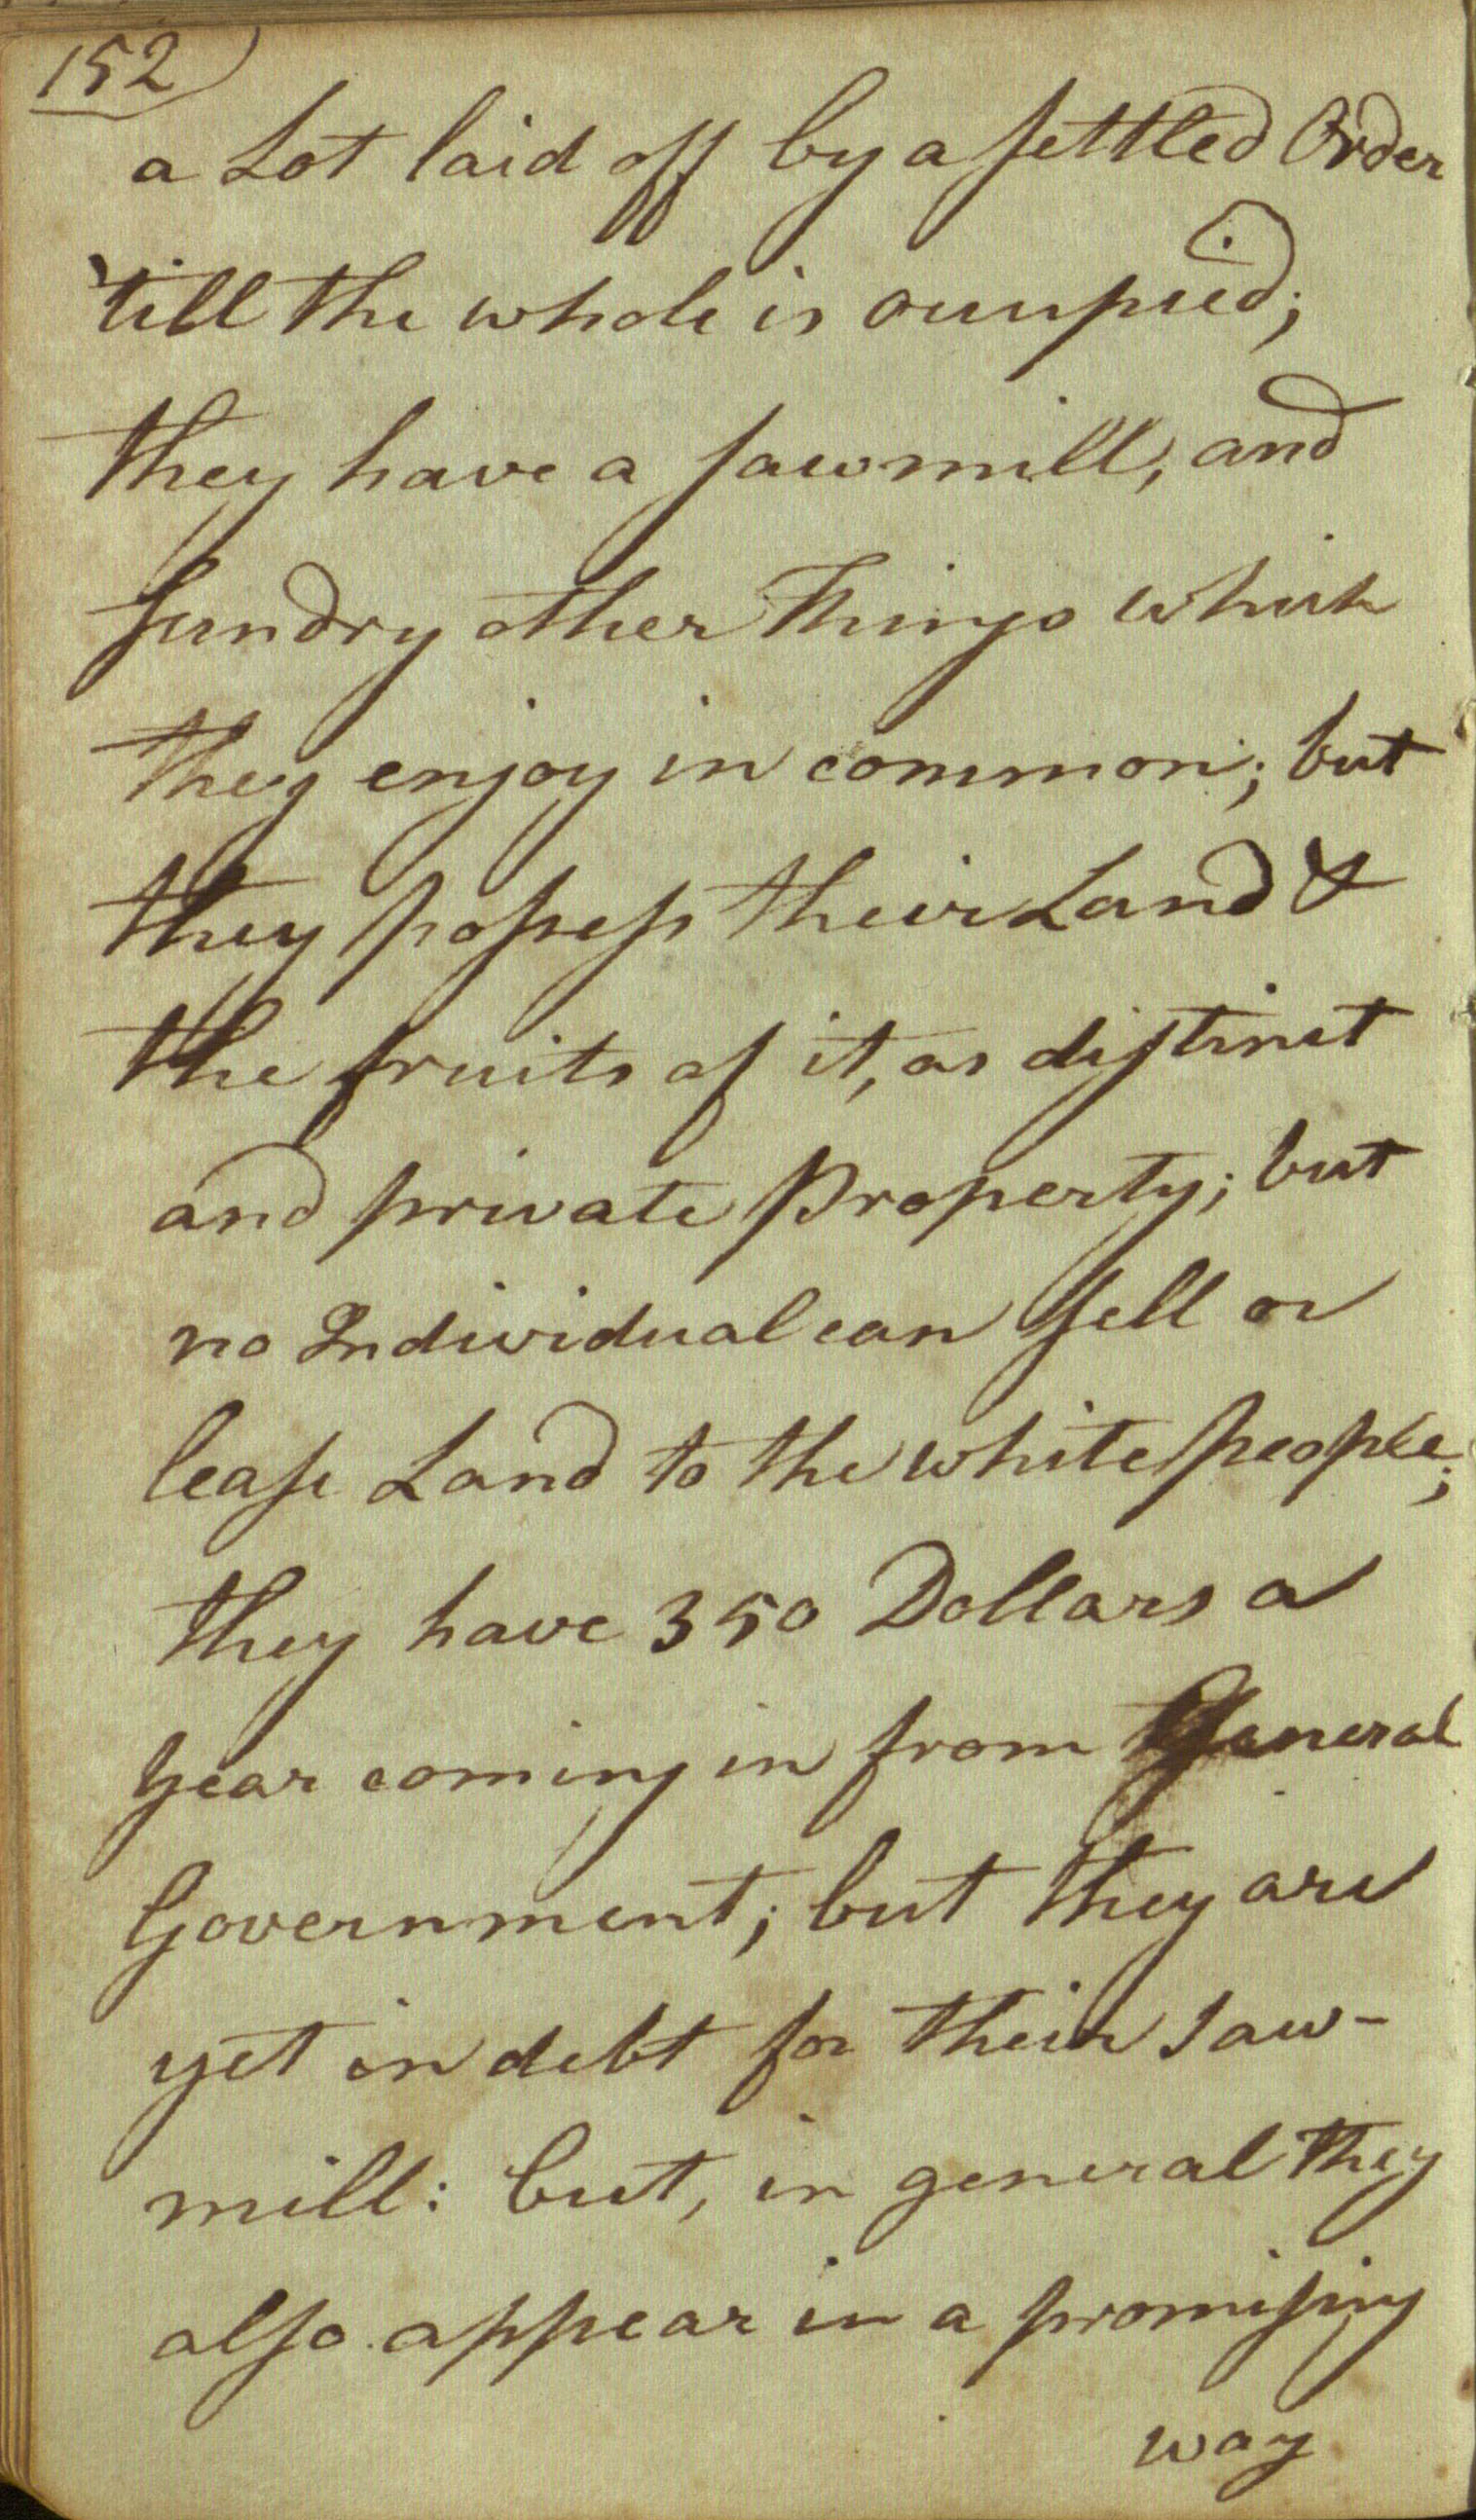 152
a Lot laid off by a settled Order
'till the whole is occupied;
they have a sawmill, and
sundry other Things which
they enjoy in common; but
they possess their Land &
the fruits of it, as distinct
and private Property; but
no Individual can sell or
lease Land to the white people;
they have 350 Dollars a
year coming in from General
Government; but they are
yet in debt for their saw-
mill: but, in general they
also appear in a promising
way